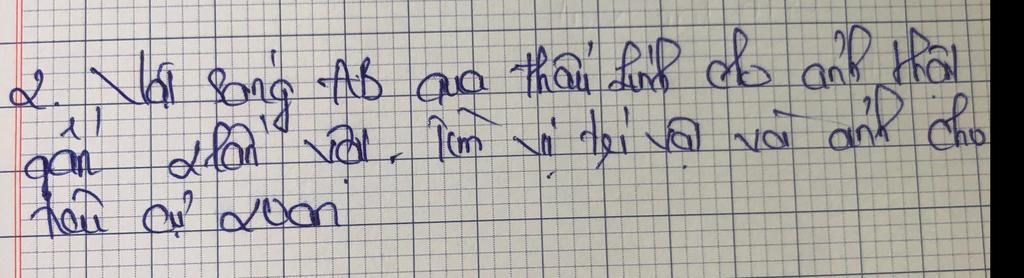 2. Vật sáng AB qua thấu kính cho ảnh thật
gấp lần vật. Tìm vị trí vật và ảnh cho
tiêu cự